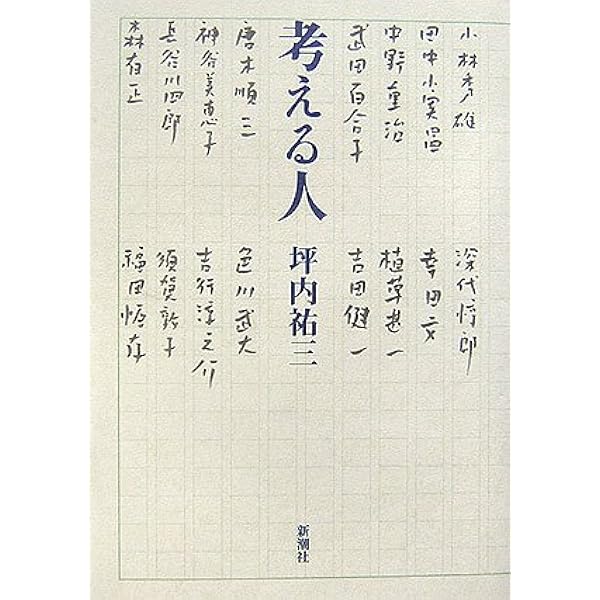 小林秀雄
田中小実昌
中野重治
武田百合子
考える人
唐木順三
神谷美恵子
長谷川四郎
森有正
深代惇郎
幸田文
植草甚一
吉田健一
坪内祐三
色川武大
吉行淳之介
須賀敦子
福田恆存
新潮社